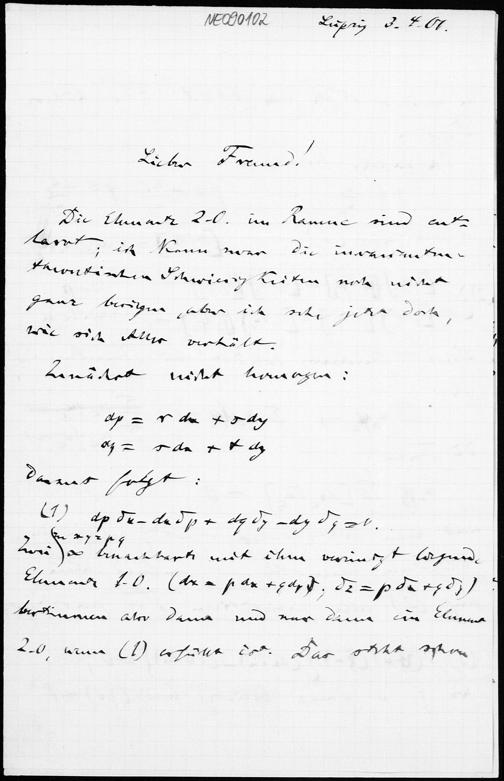 NEO90102
Leipzig 3-4-01.
Lieber Freund!
Die Elemente 2-O. im Raume sind ent-
larvt; ich kann zwar die invarianten-
theoretischen Schwierigkeiten noch nicht
ganz besiegen, aber ich sehe jetzt doch,
wie sich Alles verhält.
Zunächst nicht homogen:
dp = r dx + s dy
dq = s dx + t dy
Daraus folgt:
(1) dp δx - dx δp + dq δy - dy δq = 0.
in x y z p q
Zwei ∞ benachbarte mit ihm vereinigt liegende
Elemente 1-O. (dz = p dx + q dy, δz = p δx + q δy)
bestimmen aber dann und nur dann ein Element
2-O, wenn (1) erfüllt ist. Das steht schon